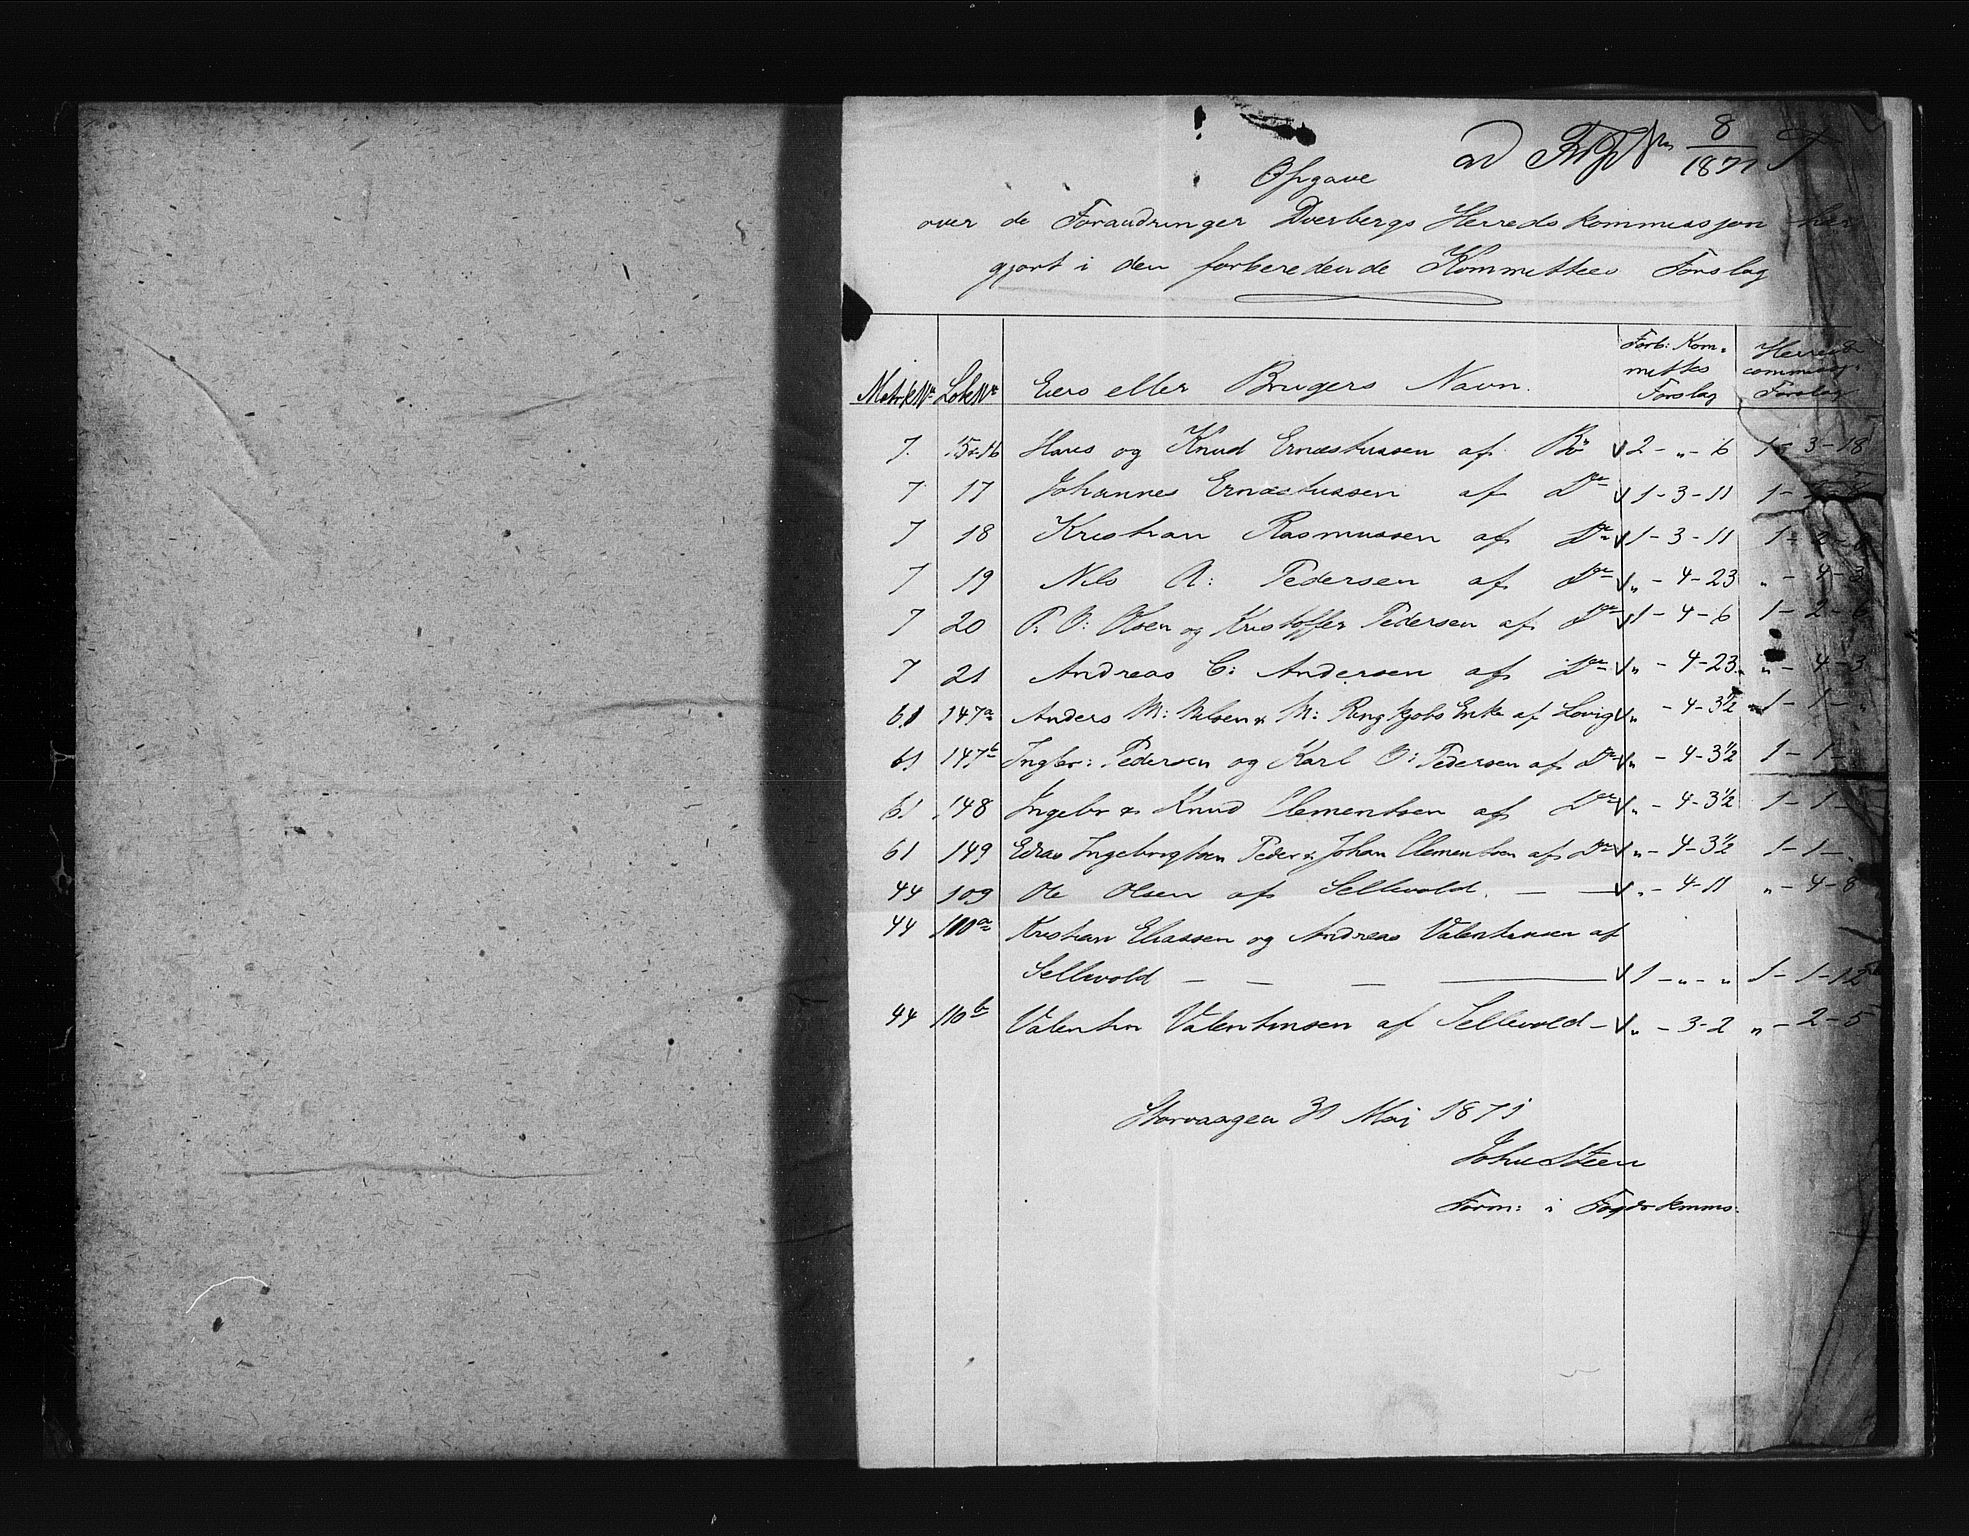 ad 8/1871
Opgave
over de Forandringer Dverbergs Herredskommissjon har
gjort i den forberedende Kommittees Forslag
Matr No Løb No Eiers eller Brugers Navn. Forb: Kommittes Forslag Herredscommissj. Forslag
7. 15 & 16 Hans og Knud Ernæstussen af Bø 2 - „ - 6 1 - 3 - 18
7 17 Johannes Ernæstussen af Do 1 - 3 - 11 1 -
7 18 Kristian Rasmussen af Do 1 - 3 - 11 1 - 2 -
7 19 Nils A: Pedersen af Do „ - 4 - 23 „ - 4 - 3
7 20 P. O: Olsen og Kristoffer Pedersen af Do 1 - 4 - 6 1 - 2 - 6
7 21 Andreas C: Andersen af Do „ - 4 - 23 „ - 4 - 3
61 147a Anders M: Nilsen & M: Ringkjøbs Enke af Lovig „ - 4 - 3½ 1 - 1 - „
61 147b Ingbr: Pedersen og Karl O: Pedersen af Do „ - 4 - 3½ 1 - 1 -
61 148 Ingebr & Knud Clementsen af Do „ - 4 - 3½ 1 - 1 -
61 149 Edias Ingebrigtsen Peder & Johan Clementsen af Do „ - 4 - 3½ 1 - 1 - „
44 109 Ole Olsen af Sellevold. — — „ - 4 - 11 „ - 4 - 8
44 110a Kristian Eliassen og Andreas Valentinsen af
Sellevold — — — — 1 - „ - „ 1 - 1 - 12
44 110b Valentin Valentinsen af Sellevold — „ - 3 - 2 „ - 2 - 5
Storvaagen 31 Maj 1871
John Steen
Form: i Fogdrkmms: